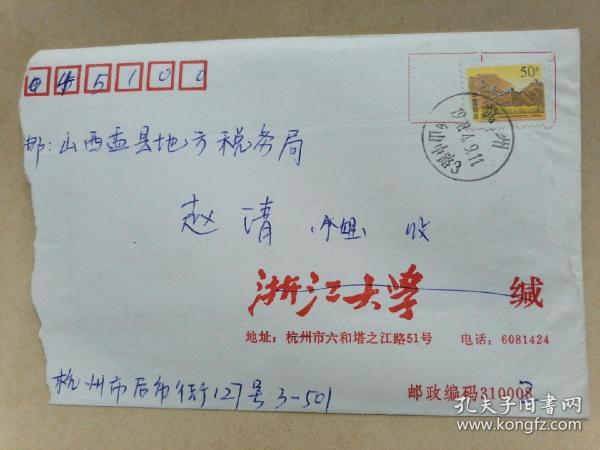 045100
50分
邮：山西盂县地方税务局
赵清 小姐 收
浙江大学 缄
地址：杭州市六和塔之江路51号 电话：6081424
杭州市后市街127号3-501
邮政编码310008
孔夫子旧书网
www.kongfz.com